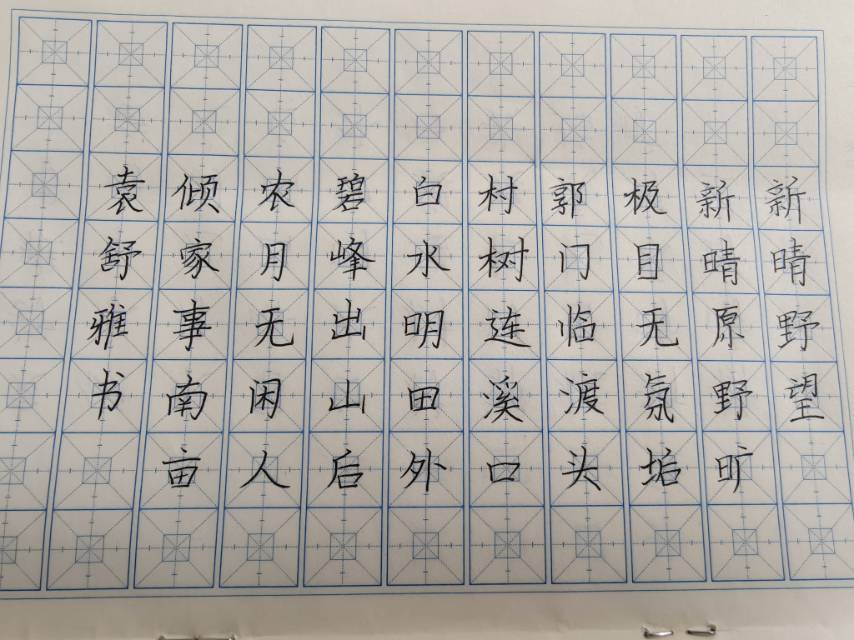 新晴野望
新晴原野旷
极目无氛垢
郭门临渡头
村树连溪口
白水明田外
碧峰出山后
农月无闲人
倾家事南亩
袁舒雅书